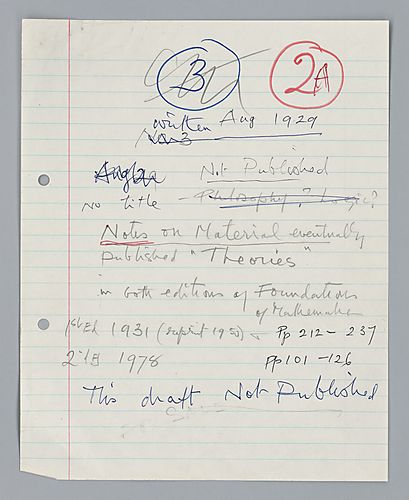 B 2A
written Aug 1929
Not Published
No title - Philosophy? Logic?
Notes on Material eventually
published "Theories"
in both editions of Foundations
of Mathematics
1st Ed 1931 (reprint 1950) pp 212 - 237
2nd Ed 1978 pp 101 - 126
This draft Not Published